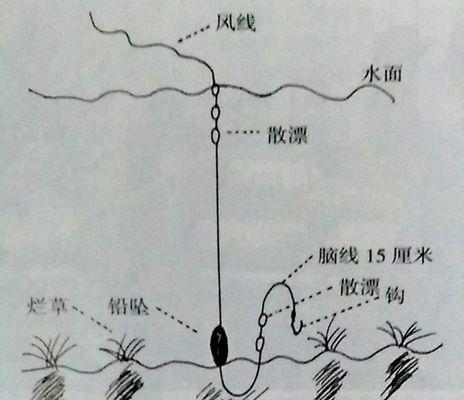 风线
水面
散漂
脑线 15 厘米
散漂
钩
烂草
铅坠